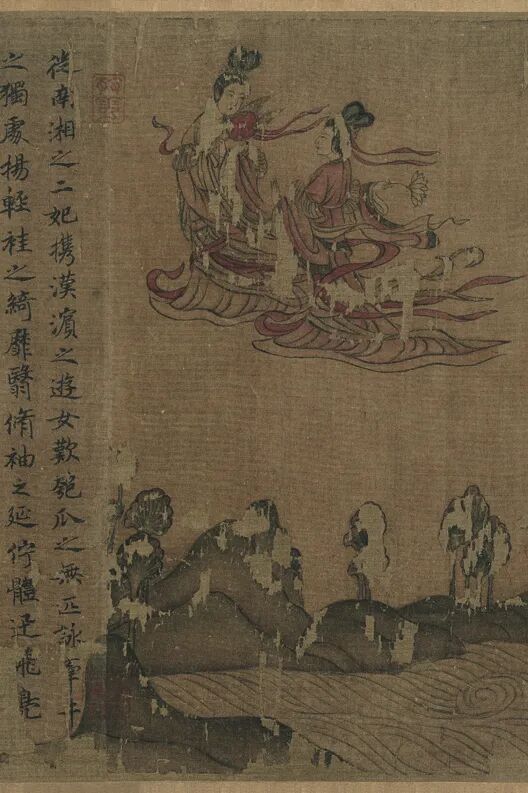 從南湘之二妃携漢濱之遊女歎匏瓜之無匹詠牽牛
之獨處揚輕袿之綺靡翳脩袖之延佇體迅飛鳧